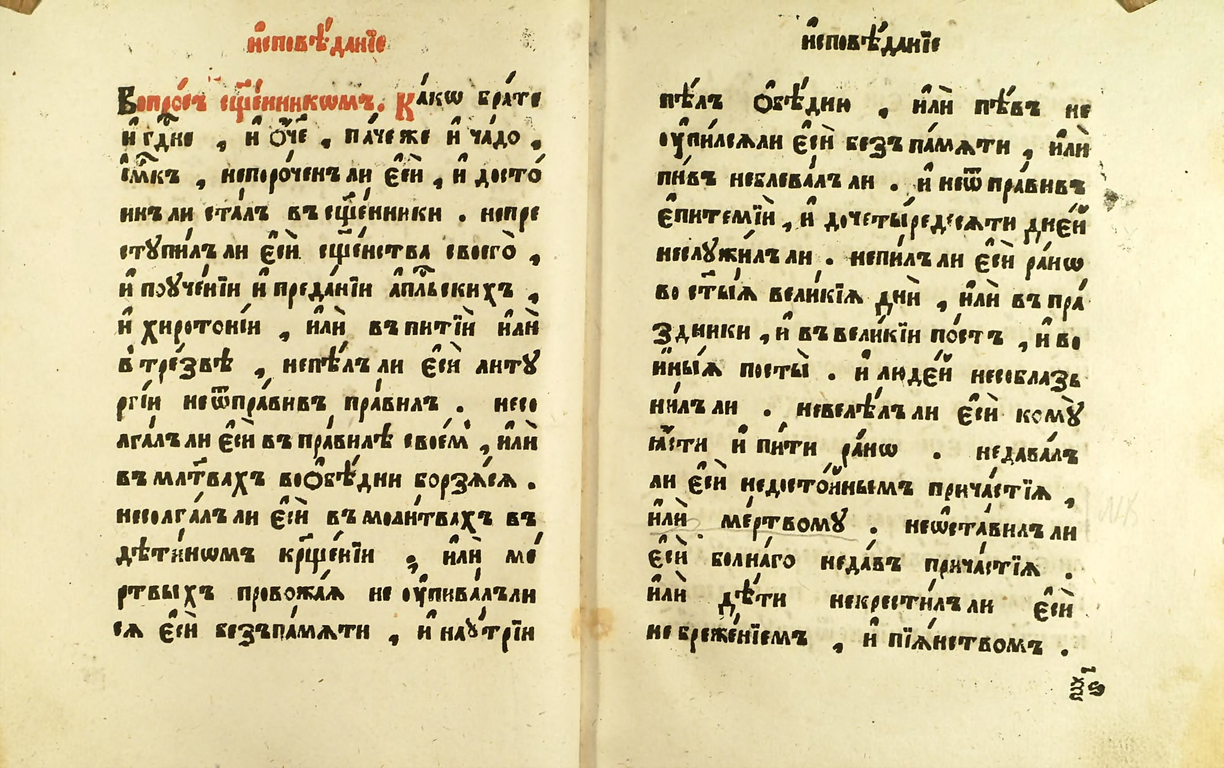 и҆сповѣ́данїе
Вопро́съ сщ҃е́нникωмъ. Ка́кω бра́те
и҆ гдⷭ҇не , и҆ ѻ҆́ч҃е , па́че же и҆ ча́до ,
и҆мкъ , непоро́ченъ ли є҆сѝ , и҆ досто́
инъ ли ста́лъ въ сщ҃е́нники . непре
ступи́лъ ли є҆сѝ сщ҃е́нства своегѡ̀ ,
и҆ поꙋче́нїи и҆ преда́нїи а҆пⷭ҇льскихъ ,
и҆ хиротоні́и , и҆лѝ въ питїѝ и҆лѝ
в тре́звѣ , непѣ́лъ ли є҆сѝ литꙋ
ргі́и неѿпра́вивъ пра́вилъ . несо
лга́лъ ли є҆сѝ въ пра́вилѣ свое́мъ , и҆лѝ
въ мл҃твахъ во ѻ҆бѣ́дни борзѧ́сѧ .
несолга́лъ ли є҆сѝ въ моли́твахъ въ
дѣти́нωмъ крⷭ҇ще́нїи , и҆лѝ ме́
ртвыхъ провожа́ѧ не оу҆пива́лъ ли
сѧ є҆сѝ безъ па́мѧти , и҆ на оу҆́трїи
и҆сповѣ́данїе
пѣ́лъ ѻ҆бѣ́дню , и҆лѝ пѣ́въ не
оу҆пи́лсѧ ли є҆сѝ безъ па́мѧти , и҆лѝ
пи́въ неблева́лъ ли . и҆ неѿпра́вивъ
є҆питемїѝ , и҆ до четы́редесѧти дне́й
неслꙋжи́лъ ли . непи́лъ ли є҆сѝ ра́нω
во ст҃ы́ѧ вели́кїѧ днѝ , и҆лѝ въ пра́
здники , и҆ въ вели́кїи по́стъ , и҆ во
и҆ны́ѧ посты̀ . и҆ люде́й несоблазь
ни́лъ ли . невелѣ́лъ ли є҆сѝ комꙋ̀
ꙗ҆́сти и҆ пи́ти ра́нω . недава́лъ
ли є҆сѝ недосто́йнымъ прича́стїѧ ,
и҆лѝ ме́ртвомꙋ . неωста́вилъ ли
є҆сѝ болна́го неда́въ прича́стїѧ .
и҆лѝ дѣ́ти некрести́лъ ли є҆сѝ
не бреже́нїемъ , и҆ пїѧ́нством̾ъ .